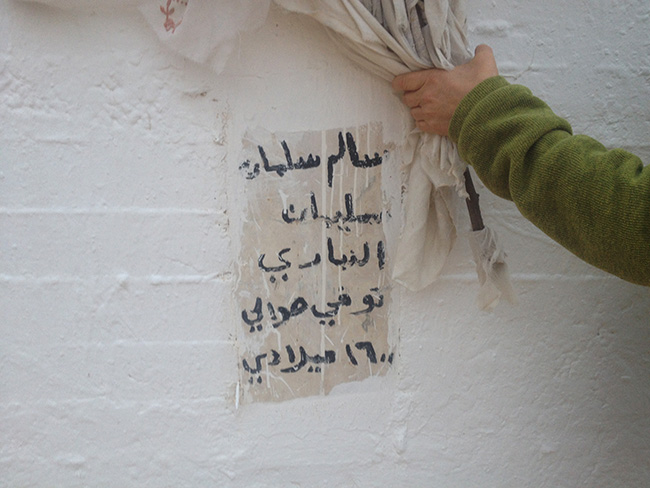 سالم سلمان
سليمان
النباري
توفي حوالي
١٦٠٠ ميلادي